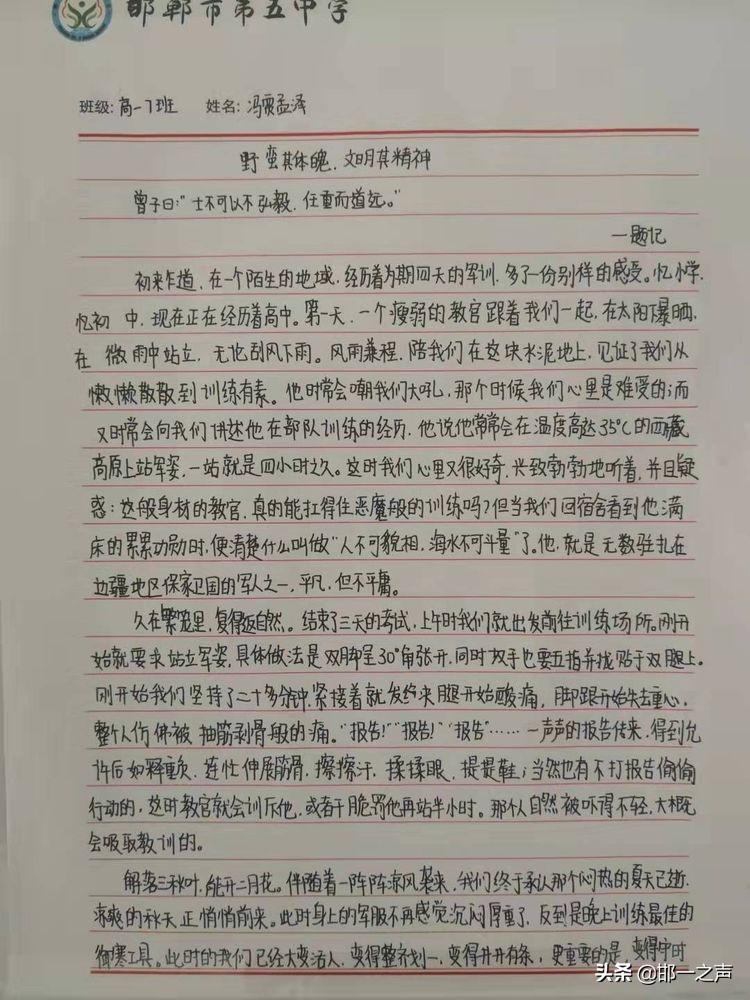 邯郸市第五中学
班级: 高一7班 姓名: 冯震孟泽
野蛮其体魄，文明其精神
曾子曰:“士不可以不弘毅，任重而道远。”
一题记
初来乍道，在一个陌生的地域，经历着为期四天的军训，多了一份别样的感受。忆小学，
忆初 中，现在正在经历着高中。第一天，一个瘦弱的教官跟着我们一起，在太阳下曝晒，
在 微雨中站立，无论刮风下雨。风雨兼程，陪我们在这块水泥地上，见证了我们从
懒懒散散到训练有素。他时常会嘲我们大吼，那个时候我们心里是难受的；而
又时常会向我们讲述他在部队训练的经历，他说他常常会在温度高达35℃的西藏
高原上站军姿，一站就是四小时之久。这时我们心里又很好奇，兴致勃勃地听着，并且疑
惑：这般身材的教官，真的能扛得住恶魔般的训练吗？但当我们回宿舍看到他满
床的累累功勋时，便清楚什么叫做“人不可貌相，海水不可斗量”了。他，就是无数驻扎在
边疆地区保家卫国的军人之一，平凡，但不平庸。
久在樊笼里，复得返自然。结束了三天的考试，上午时我们就出发前往训练场所。刚开
始就要求站立军姿，具体做法是双脚呈30°角张开，同时双手也要五指并拢贴于双腿上。
刚开始我们坚持了二十多分钟，紧接着就发约来腿开始酸痛，脚跟开始失去重心，
整个人仿佛被抽筋剥骨般的痛。“报告！”“报告！”“报告”……一声声的报告传来，得到允
许后如释重负，连忙伸展筋骨，擦擦汗，揉揉眼，提提鞋；当然也有不打报告偷偷
行动的，这时教官就会训斥他，或者干脆罚他再站半小时。那个人自然被吓得不轻，大概
会吸取教训的。
解落三秋叶，能开二月花。伴随着一阵阵凉风袭来，我们终于承认那个闷热的夏天已逝，
凉爽的秋天正悄悄前来。此时身上的军服不再感觉沉闷厚重了，反到是晚上训练最佳的
御寒工具。此时的我们已经大变活人，变得整齐划一，变得井井有条，更重要的是变得守时
头条 @邯一之声